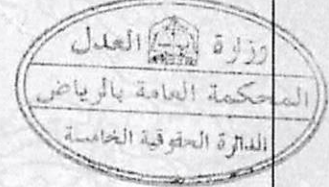 وزارة العدل
المحكمة العامة بالرياض
الدائرة الحقوقية الخامسة